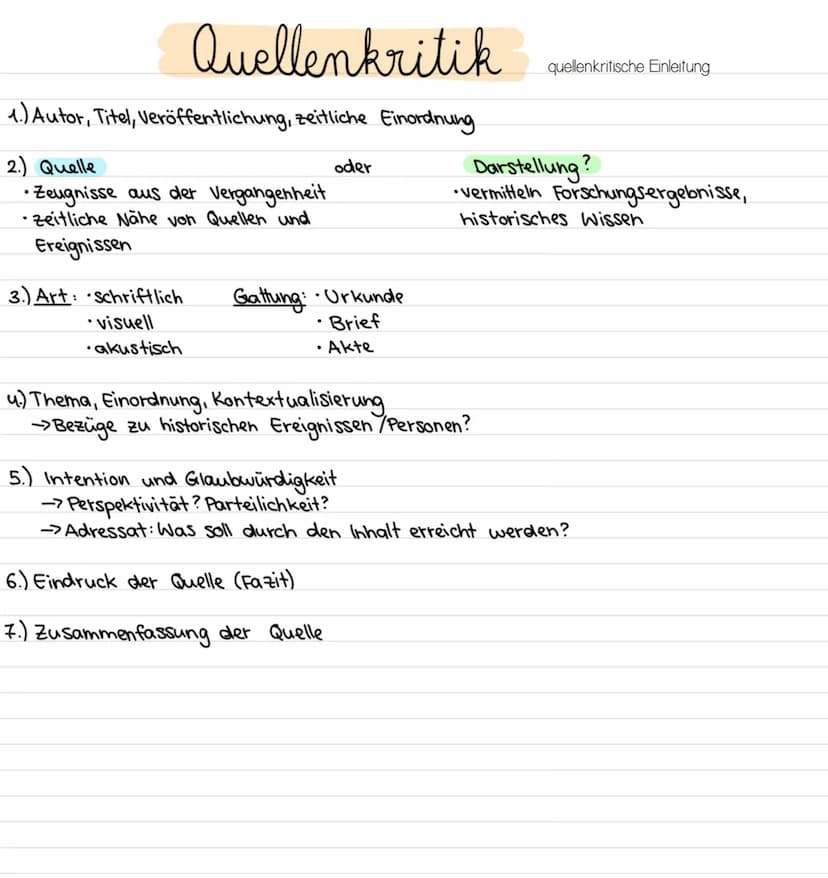 Quellenkritik quellenkritische Einleitung
1.) Autor, Titel, Veröffentlichung, zeitliche Einordnung
2.) Quelle oder Darstellung?
· Zeugnisse aus der Vergangenheit · vermitteln Forschungsergebnisse,
· zeitliche Nähe von Quellen und historisches Wissen
Ereignissen
3.) Art: · schriftlich Gattung: · Urkunde
· visuell · Brief
· akustisch · Akte
4.) Thema, Einordnung, Kontextualisierung
→ Bezüge zu historischen Ereignissen / Personen?
5.) Intention und Glaubwürdigkeit
→ Perspektivität? Parteilichkeit?
→ Adressat: Was soll durch den Inhalt erreicht werden?
6.) Eindruck der Quelle (Fazit)
7.) Zusammenfassung der Quelle